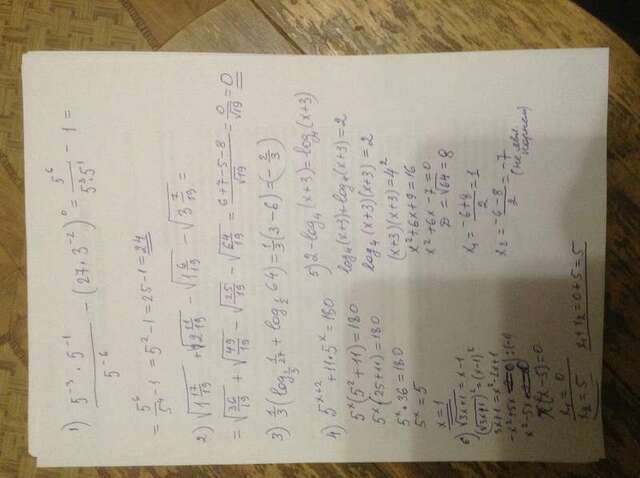 1) (5⁻³ · 5⁻¹)/5⁻⁶ − (27 · 3⁻²)⁰ = 5⁶/(5³·5¹) − 1 =
= 5⁶/5⁴ − 1 = 5² − 1 = 25 − 1 = 24
2) √(1 17/19) + √(2 11/19) − √(1 6/19) − √(3 7/19) =
= √(36/19) + √(49/19) − √(25/19) − √(64/19) = (6+7−5−8)/√19 = 0/√19 = 0
3) 1/3 (log_{1/3} 1/27 + log_{1/2} 64) = 1/3 (3 − 6) = (− 2/3)
4) 5^{x+2} + 11 · 5^x = 180
5^x (5² + 11) = 180
5^x (25 + 11) = 180
5^x · 36 = 180
5^x = 5
x = 1
5) 2 − log₄ (x+3) = log₄ (x+3)
log₄ (x+3) + log₄ (x+3) = 2
log₄ (x+3)(x+3) = 2
(x+3)(x+3) = 4²
x² + 6x + 9 = 16
x² + 6x − 7 = 0
D = √64 = 8
x₁ = (−6+8)/2 = 1
x₂ = (−6−8)/2 = −7
(не явл
корнем)
6) √(3x+1) = x − 1
(√(3x+1))² = (x−1)²
3x+1 = x² − 2x + 1
−x² + 5x = 0 | : (−1)
x² − 5x = 0
x (x − 5) = 0
x₁ = 0
x₂ = 5
x₁ + x₂ = 0 + 5 = 5